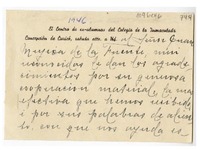 1946
El Centro de ex-alumnas del Colegio de la Inmaculada
Concepción de Carich, saluda atte. a Ud. al Señor Juan
Mujica de la Fuente muy
reconocidas le dan los agrade-
cimientos por su generosa
cooperación material, la más
efectiva que hemos recibido
i por sus palabras de alien-
to, con que nos ayuda